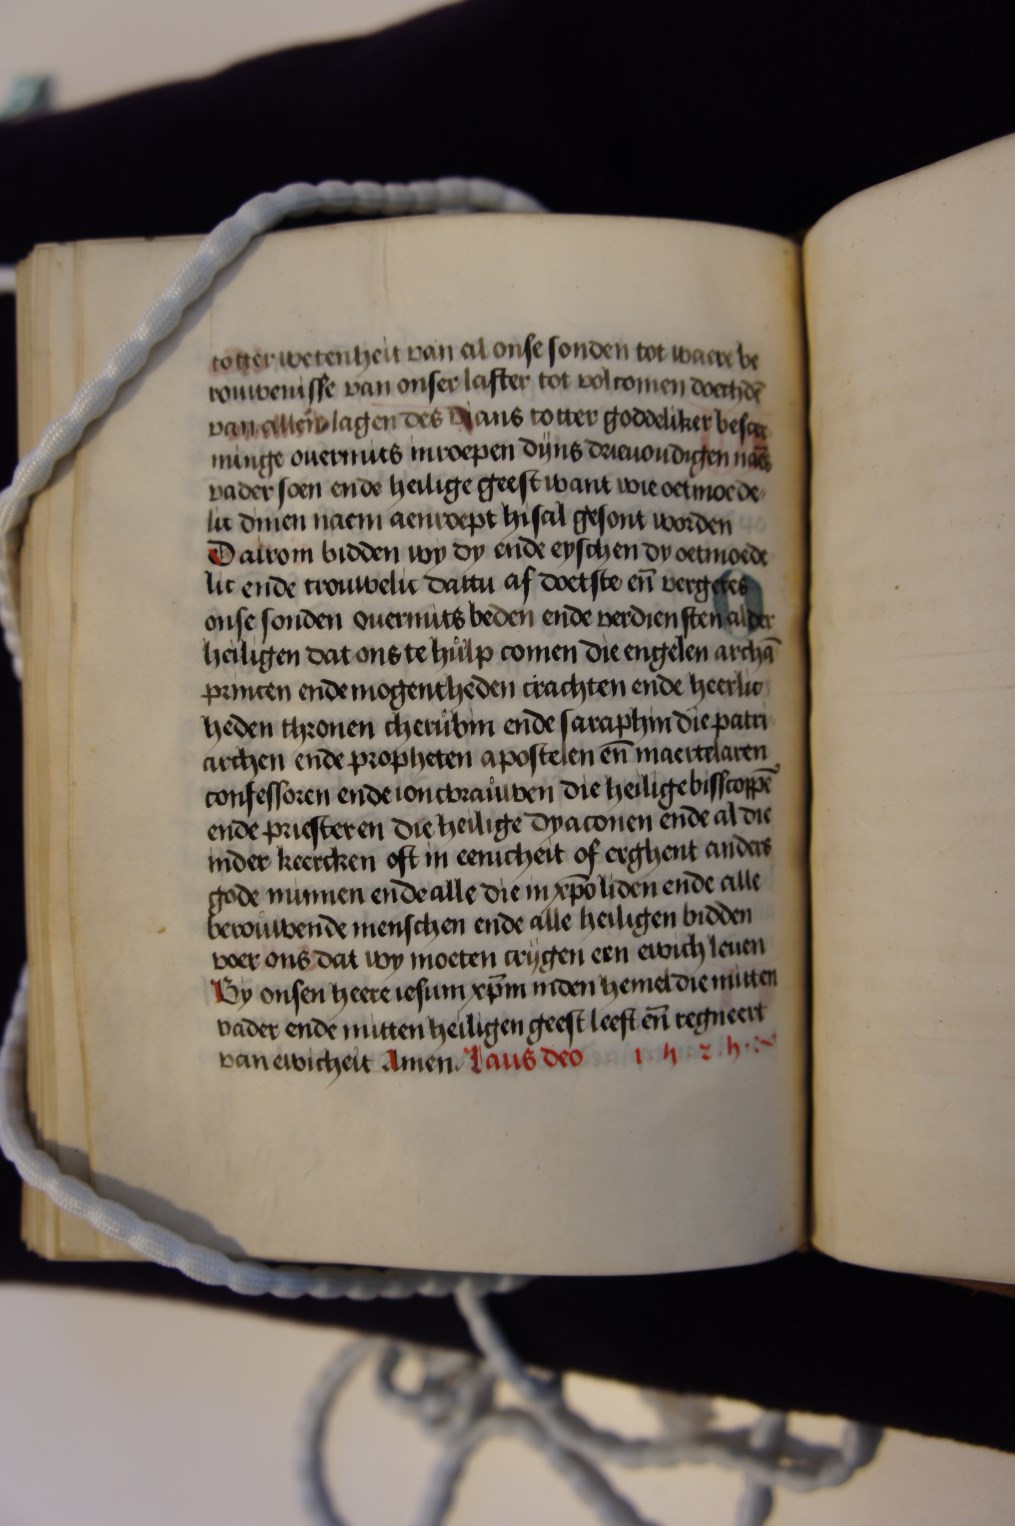 totter wetenheit van al onse sonden tot waere be
rouwenisse van onser laster tot volcomen doechdē
van allen lagen des vians totter goddeliker bescer
minge ouermits inroepen dijns drievoudigen
vader soen ende heilige geest want wie oetmoede
lic dinen naem aenroept hi sal gesont worden
Dairom bidden wy dy ende eyschen dy oetmoede
lic ende trouwelic dattu af doetste en̄ vergetes
onse sonden ouermits beden ende verdiensten alder
heiligen dat ons te hůlp comen die engelen archā
princen ende mogentheden crachten ende heerlic
heden thronen cherůbin ende saraphin die patri
archen ende propheten apostelen en̄ maertelaren
confessoren ende ioncvraůwen die heilige bisscoppē
ende priesteren die heilige dyaconen ende al die
inder keercken oft in eenicheit of erghent anders
gode minnen ende alle die in xp̄o liden ende alle
beroůwende menschen ende alle heiligen bidden
voer ons dat wy moeten crijgen een ewich leuen
By onsen heere iesum xp̄m inden hemel die mitten
vader ende mitten heiligen geest leeft en̄ regneert
van ewicheit Amen. Laus deo 1 . h . 2 . h .